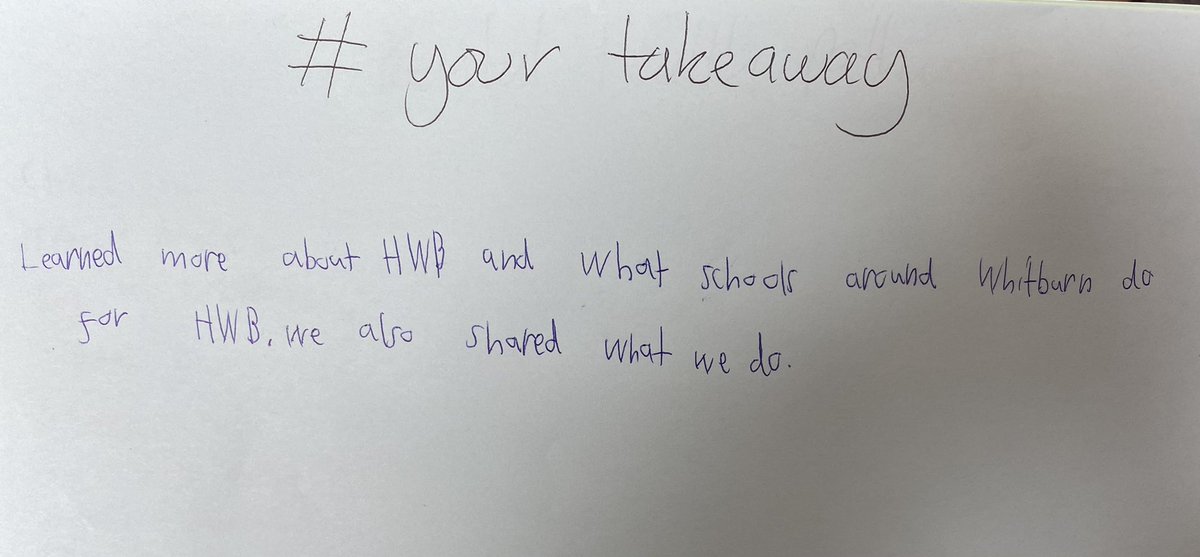 # your takeaway
Learned more about HWB and what schools around Whitburn do
for HWB. we also shared what we do.